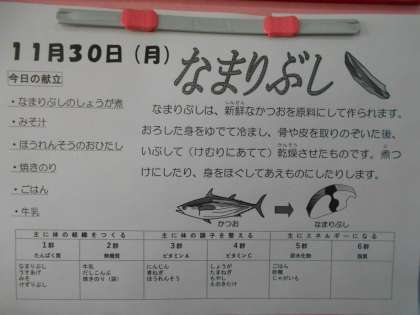 11月30日（月）
なまりぶし
今日の献立
・なまりぶしのしょうが煮
・みそ汁
・ほうれんそうのおひたし
・焼きのり
・ごはん
・牛乳
なまりぶしは、新鮮なかつおを原料にして作られます。
おろした身をゆでて冷まし、骨や皮を取りのぞいた後、
いぶして（けむりにあてて）乾燥させたものです。煮つ
けにしたり、身をほぐしてあえものにしたりします。
しんせん
かんそう
に
かつお
なまりぶし
主に体の組織をつくる
主に体の調子を整える
主にエネルギーになる
1群 2群 3群 4群 5群 6群
たんぱく質 無機質 ビタミンA ビタミンC 炭水化物 脂質
なまりぶし 牛乳 にんじん しょうが ごはん
うすあげ だしこんぶ 青ねぎ たまねぎ 砂糖
みそ 焼きのり ほうれんそう もやし じゃがいも
けずりぶし えのきたけ